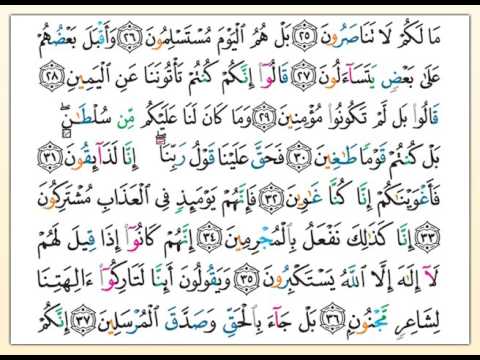 مَا لَكُمۡ لَا تَنَاصَرُونَ ٢٥ بَلۡ هُمُ ٱلۡيَوۡمَ مُسۡتَسۡلِمُونَ ٢٦ وَأَقۡبَلَ بَعۡضُهُمۡ
عَلَىٰ بَعۡضٖ يَتَسَآءَلُونَ ٢٧ قَالُوٓاْ إِنَّكُمۡ كُنتُمۡ تَأۡتُونَنَا عَنِ ٱلۡيَمِينِ ٢٨
قَالُواْ بَل لَّمۡ تَكُونُواْ مُؤۡمِنِينَ ٢٩ وَمَا كَانَ لَنَا عَلَيۡكُم مِّن سُلۡطَٰنِۭۖ
بَلۡ كُنتُمۡ قَوۡمٗا طَٰغِينَ ٣٠ فَحَقَّ عَلَيۡنَا قَوۡلُ رَبِّنَآۖ إِنَّا لَذَآئِقُونَ ٣١
فَأَغۡوَيۡنَٰكُمۡ إِنَّا كُنَّا غَٰوِينَ ٣٢ فَإِنَّهُمۡ يَوۡمَئِذٖ فِي ٱلۡعَذَابِ مُشۡتَرِكُونَ
٣٣ إِنَّا كَذَٰلِكَ نَفۡعَلُ بِٱلۡمُجۡرِمِينَ ٣٤ إِنَّهُمۡ كَانُوٓاْ إِذَا قِيلَ لَهُمۡ
لَآ إِلَٰهَ إِلَّا ٱللَّهُ يَسۡتَكۡبِرُونَ ٣٥ وَيَقُولُونَ أَئِنَّا لَتَارِكُوٓاْ ءَالِهَتِنَا
لِشَاعِرٖ مَّجۡنُونِۭ ٣٦ بَلۡ جَآءَ بِٱلۡحَقِّ وَصَدَّقَ ٱلۡمُرۡسَلِينَ ٣٧ إِنَّكُمۡ